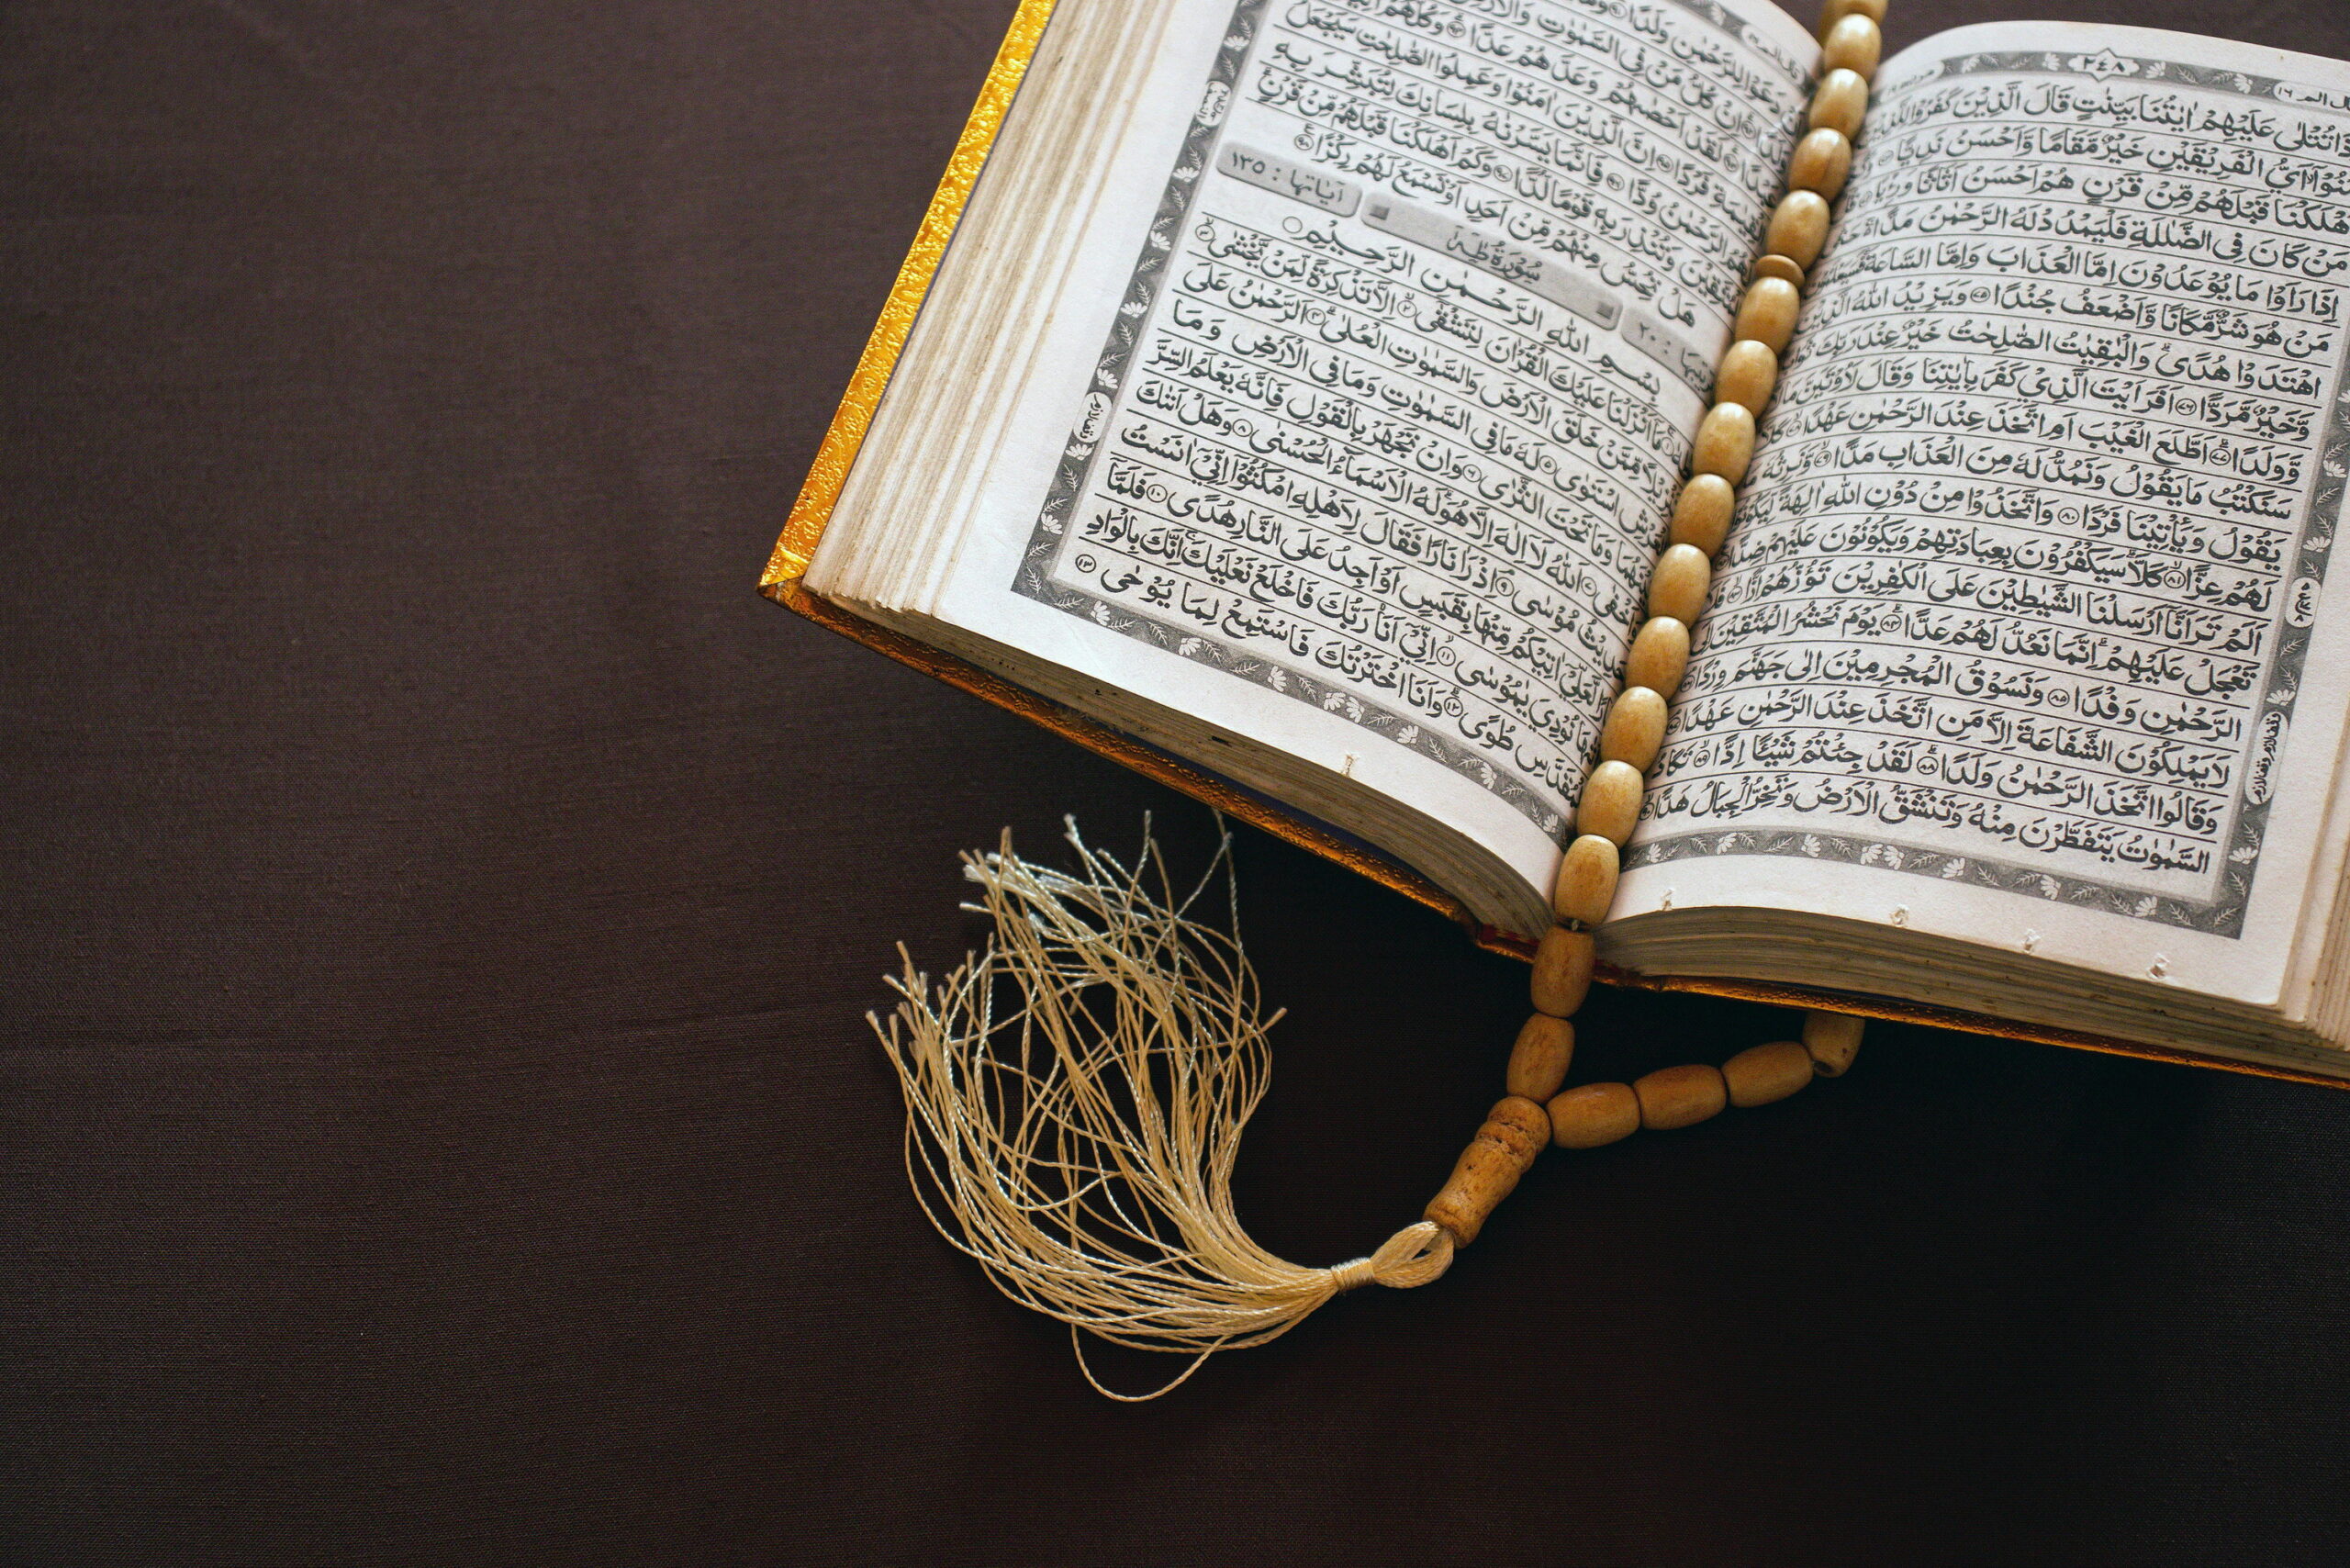 ٢٤٨
تُتْلٰى عَلَيْهِمْ اٰيٰتُنَا بَيِّنٰتٍ قَالَ الَّذِيْنَ كَفَرُوْا
اَيُّ الْفَرِيْقَيْنِ خَيْرٌ مَّقَامًا وَّاَحْسَنُ نَدِيًّا ٧٣
اَهْلَكْنَا قَبْلَهُمْ مِّنْ قَرْنٍ هُمْ اَحْسَنُ اَثَاثًا وَّرِءْيًا ٧٤
مَنْ كَانَ فِى الضَّلٰلَةِ فَلْيَمْدُدْ لَهُ الرَّحْمٰنُ مَدًّا
اِذَا رَاَوْا مَا يُوْعَدُوْنَ اِمَّا الْعَذَابَ وَاِمَّا السَّاعَةَ
مَنْ هُوَ شَرٌّ مَّكَانًا وَّاَضْعَفُ جُنْدًا ٧٥ وَيَزِيْدُ اللّٰهُ الَّذِيْنَ
اهْتَدَوْا هُدًى وَالْبٰقِيٰتُ الصّٰلِحٰتُ خَيْرٌ عِنْدَ رَبِّكَ
وَّخَيْرٌ مَّرَدًّا ٧٦ اَفَرَاَيْتَ الَّذِيْ كَفَرَ بِاٰيٰتِنَا وَقَالَ لَاُوْتَيَنَّ مَا
وَّوَلَدًا ٧٧ اَطَّلَعَ الْغَيْبَ اَمِ اتَّخَذَ عِنْدَ الرَّحْمٰنِ عَهْدًا ٧٨
سَنَكْتُبُ مَا يَقُوْلُ وَنَمُدُّ لَهُ مِنَ الْعَذَابِ مَدًّا ٧٩ وَّنَرِثُهُ
يَقُوْلُ وَيَأْتِيْنَا فَرْدًا ٨٠ وَاتَّخَذُوْا مِنْ دُوْنِ اللّٰهِ اٰلِهَةً
لَهُمْ عِزًّا ٨١ كَلَّا سَيَكْفُرُوْنَ بِعِبَادَتِهِمْ وَيَكُوْنُوْنَ عَلَيْهِمْ ضِدًّا ٨٢
اَلَمْ تَرَ اَنَّا اَرْسَلْنَا الشَّيٰطِيْنَ عَلَى الْكٰفِرِيْنَ تَؤُزُّهُمْ اَزًّا ٨٣
تَعْجَلْ عَلَيْهِمْ اِنَّمَا نَعُدُّ لَهُمْ عَدًّا ٨٤ يَوْمَ نَحْشُرُ الْمُتَّقِيْنَ اِلَى
الرَّحْمٰنِ وَفْدًا ٨٥ وَنَسُوْقُ الْمُجْرِمِيْنَ اِلٰى جَهَنَّمَ وِرْدًا ٨٦
لَا يَمْلِكُوْنَ الشَّفَاعَةَ اِلَّا مَنِ اتَّخَذَ عِنْدَ الرَّحْمٰنِ عَهْدًا ٨٧
وَقَالُوا اتَّخَذَ الرَّحْمٰنُ وَلَدًا ٨٨ لَقَدْ جِئْتُمْ شَيْئًا اِدًّا ٨٩ تَكَادُ
السَّمٰوٰتُ يَتَفَطَّرْنَ مِنْهُ وَتَنْشَقُّ الْاَرْضُ وَتَخِرُّ الْجِبَالُ هَدًّا ٩٠
دَعَوْا لِلرَّحْمٰنِ وَلَدًا ٩١
اِنْ كُلُّ مَنْ فِى السَّمٰوٰتِ وَالْاَرْضِ
لَقَدْ اَحْصٰهُمْ وَعَدَّهُمْ عَدًّا ٩٤ وَكُلُّهُمْ اٰتِيْهِ
الْقِيٰمَةِ فَرْدًا ٩٥ اِنَّ الَّذِيْنَ اٰمَنُوْا وَعَمِلُوا الصّٰلِحٰتِ سَيَجْعَلُ
لَهُمُ الرَّحْمٰنُ وُدًّا ٩٦ فَاِنَّمَا يَسَّرْنٰهُ بِلِسَانِكَ لِتُبَشِّرَ بِهِ
الْمُتَّقِيْنَ وَتُنْذِرَ بِهٖ قَوْمًا لُّدًّا ٩٧ وَكَمْ اَهْلَكْنَا قَبْلَهُمْ مِّنْ قَرْنٍ
هَلْ تُحِسُّ مِنْهُمْ مِّنْ اَحَدٍ اَوْ تَسْمَعُ لَهُمْ رِكْزًا ٩٨
٢٠ سُوْرَةُ طٰهٰ آياتها : ١٣٥
بِسْمِ اللّٰهِ الرَّحْمٰنِ الرَّحِيْمِ
مَا اَنْزَلْنَا عَلَيْكَ الْقُرْاٰنَ لِتَشْقٰى ٢ اِلَّا تَذْكِرَةً لِّمَنْ يَّخْشٰى ٣
مِّمَّنْ خَلَقَ الْاَرْضَ وَالسَّمٰوٰتِ الْعُلٰى ٤ اَلرَّحْمٰنُ عَلَى
الْعَرْشِ اسْتَوٰى ٥ لَهُ مَا فِى السَّمٰوٰتِ وَمَا فِى الْاَرْضِ وَمَا
بَيْنَهُمَا وَمَا تَحْتَ الثَّرٰى ٦ وَاِنْ تَجْهَرْ بِالْقَوْلِ فَاِنَّهٗ يَعْلَمُ السِّرَّ
وَاَخْفٰى ٧ اَللّٰهُ لَا اِلٰهَ اِلَّا هُوَ لَهُ الْاَسْمَاءُ الْحُسْنٰى ٨ وَهَلْ اَتٰىكَ
حَدِيْثُ مُوْسٰى ٩ اِذْ رَاٰ نَارًا فَقَالَ لِاَهْلِهِ امْكُثُوْا اِنِّيْ اٰنَسْتُ
نَارًا لَّعَلِّيْ اٰتِيْكُمْ مِّنْهَا بِقَبَسٍ اَوْ اَجِدُ عَلَى النَّارِ هُدًى ١٠ فَلَمَّا
اَتٰىهَا نُوْدِيَ يٰمُوْسٰى ١١ اِنِّيْ اَنَا رَبُّكَ فَاخْلَعْ نَعْلَيْكَ اِنَّكَ بِالْوَادِ
الْمُقَدَّسِ طُوًى ١٢ وَاَنَا اخْتَرْتُكَ فَاسْتَمِعْ لِمَا يُوْحٰى ١٣